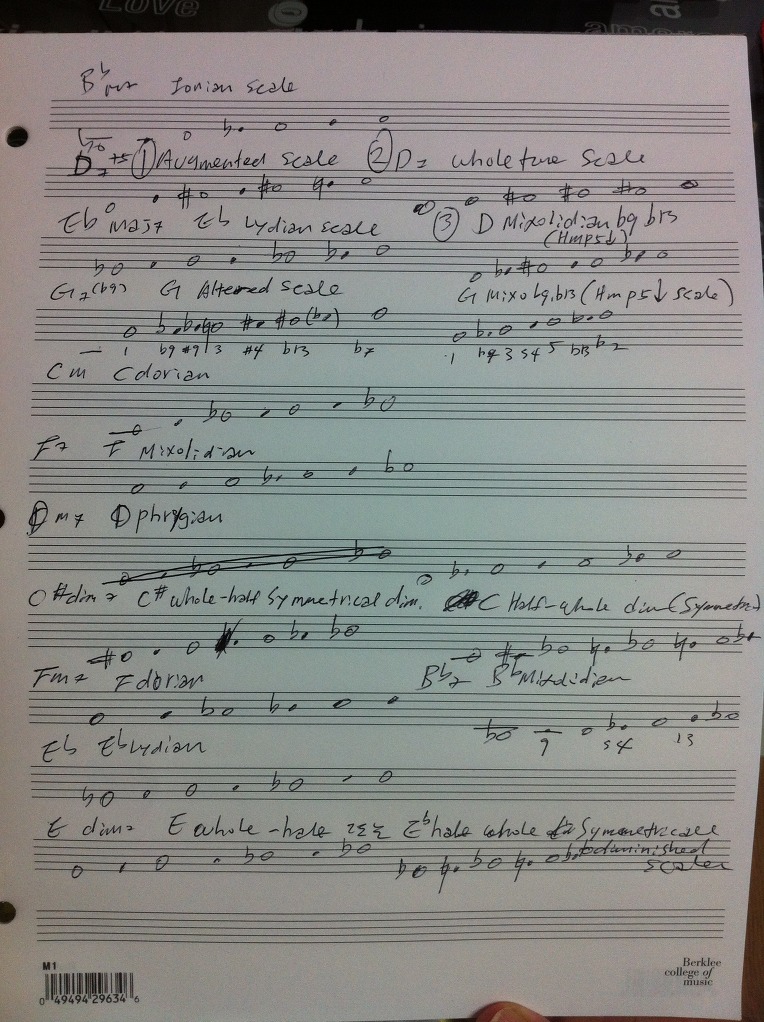 Love
amore
B♭M7 Ionian scale
D7+5 ① Augmented scale ② D7 whole tone scale
E♭ maj7 E♭ Lydian scale ③ D Mixolidian b9 b13
(Hmp5↓)
G7(b9) G Altered scale G Mixo b9, b13 (Hmp5↓ scale)
1 b9 #9 3 #4 b13 b7 1 b9 3 s4 5 b13 b7
Cm C dorian
F7 F Mixolidian
Dm7 D phrygian
C#dim7 C# whole-half symmetrical dim. C Half-whole dim (Symmetric)
Fm7 F dorian B♭7 B♭ Mixolidian
9 s4 13
E♭ E♭ Lydian
E dim7 E whole-half 또는 E♭ half whole Symmetrical
diminished
scales
M1
0 49494 29634 6
Berklee
college of
music